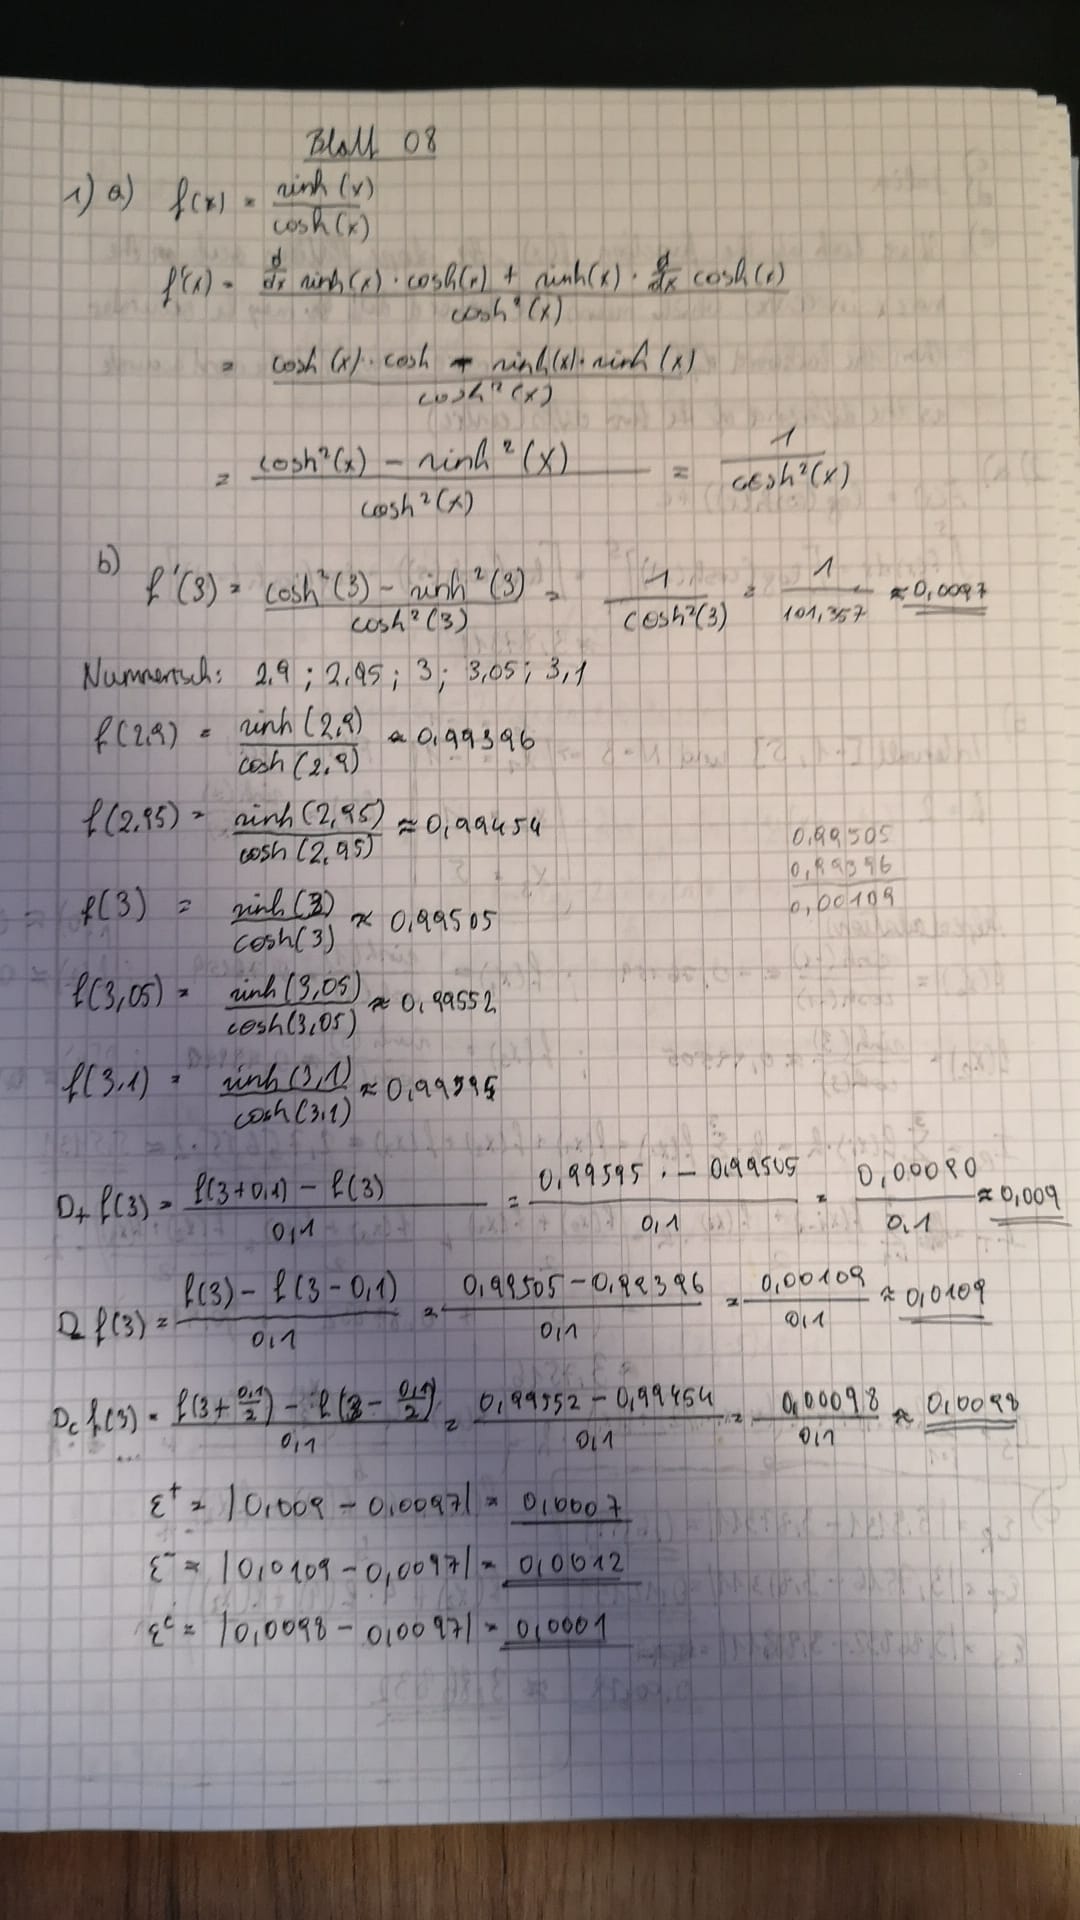 Blatt 08
1) a) f(x) = sinh(x) / cosh(x)
f'(x) = (d/dx sinh(x) · cosh(x) + sinh(x) · d/dx cosh(x)) / cosh²(x)
= (cosh(x) · cosh - sinh(x) · sinh(x)) / cosh²(x)
= (cosh²(x) - sinh²(x)) / cosh²(x) = 1 / cosh²(x)
b) f'(3) = (cosh²(3) - sinh²(3)) / cosh²(3) = 1 / cosh²(3) = 1 / 101,357 ≈ 0,0097
Numerisch: 2,9 ; 2,95 ; 3 ; 3,05 ; 3,1
f(2,9) = sinh(2,9) / cosh(2,9) ≈ 0,99396
f(2,95) = sinh(2,95) / cosh(2,95) ≈ 0,99454
0,99505
0,99396
0,00109
f(3) = sinh(3) / cosh(3) ≈ 0,99505
f(3,05) = sinh(3,05) / cosh(3,05) ≈ 0,99552
f(3,1) = sinh(3,1) / cosh(3,1) ≈ 0,99595
D+ f(3) = (f(3+0,1) - f(3)) / 0,1 = (0,99595 - 0,99505) / 0,1 = 0,00090 / 0,1 ≈ 0,009
D- f(3) = (f(3) - f(3-0,1)) / 0,1 = (0,99505 - 0,99396) / 0,1 = 0,00109 / 0,1 ≈ 0,0109
Dc f(3) = (f(3 + 0,1/2) - f(3 - 0,1/2)) / 0,1 = (0,99552 - 0,99454) / 0,1 = 0,00098 / 0,1 ≈ 0,0098
...
ε⁺ = |0,009 - 0,0097| = 0,0007
ε⁻ = |0,0109 - 0,0097| = 0,0012
εᶜ = |0,0098 - 0,0097| = 0,0001